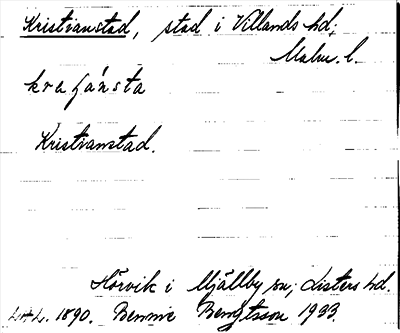 Kristianstad, stad i Villands hd;
Malm. l.
Kristianstad.
Hörvik i Mjällby sn, Listers hd.
1890. Bennie Bengtsson 1933.